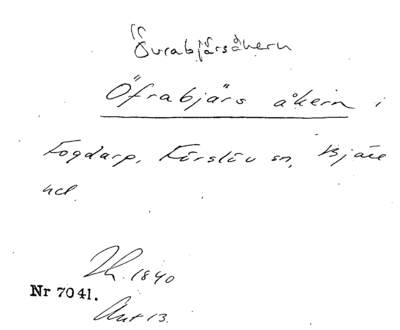 Övrabjärsåkern
Öfrabjärs åkern i
Fogdarp, Förslöv sn, Bjäre
hd.
Lh. 1840
Nr 7041.
Akt 13.